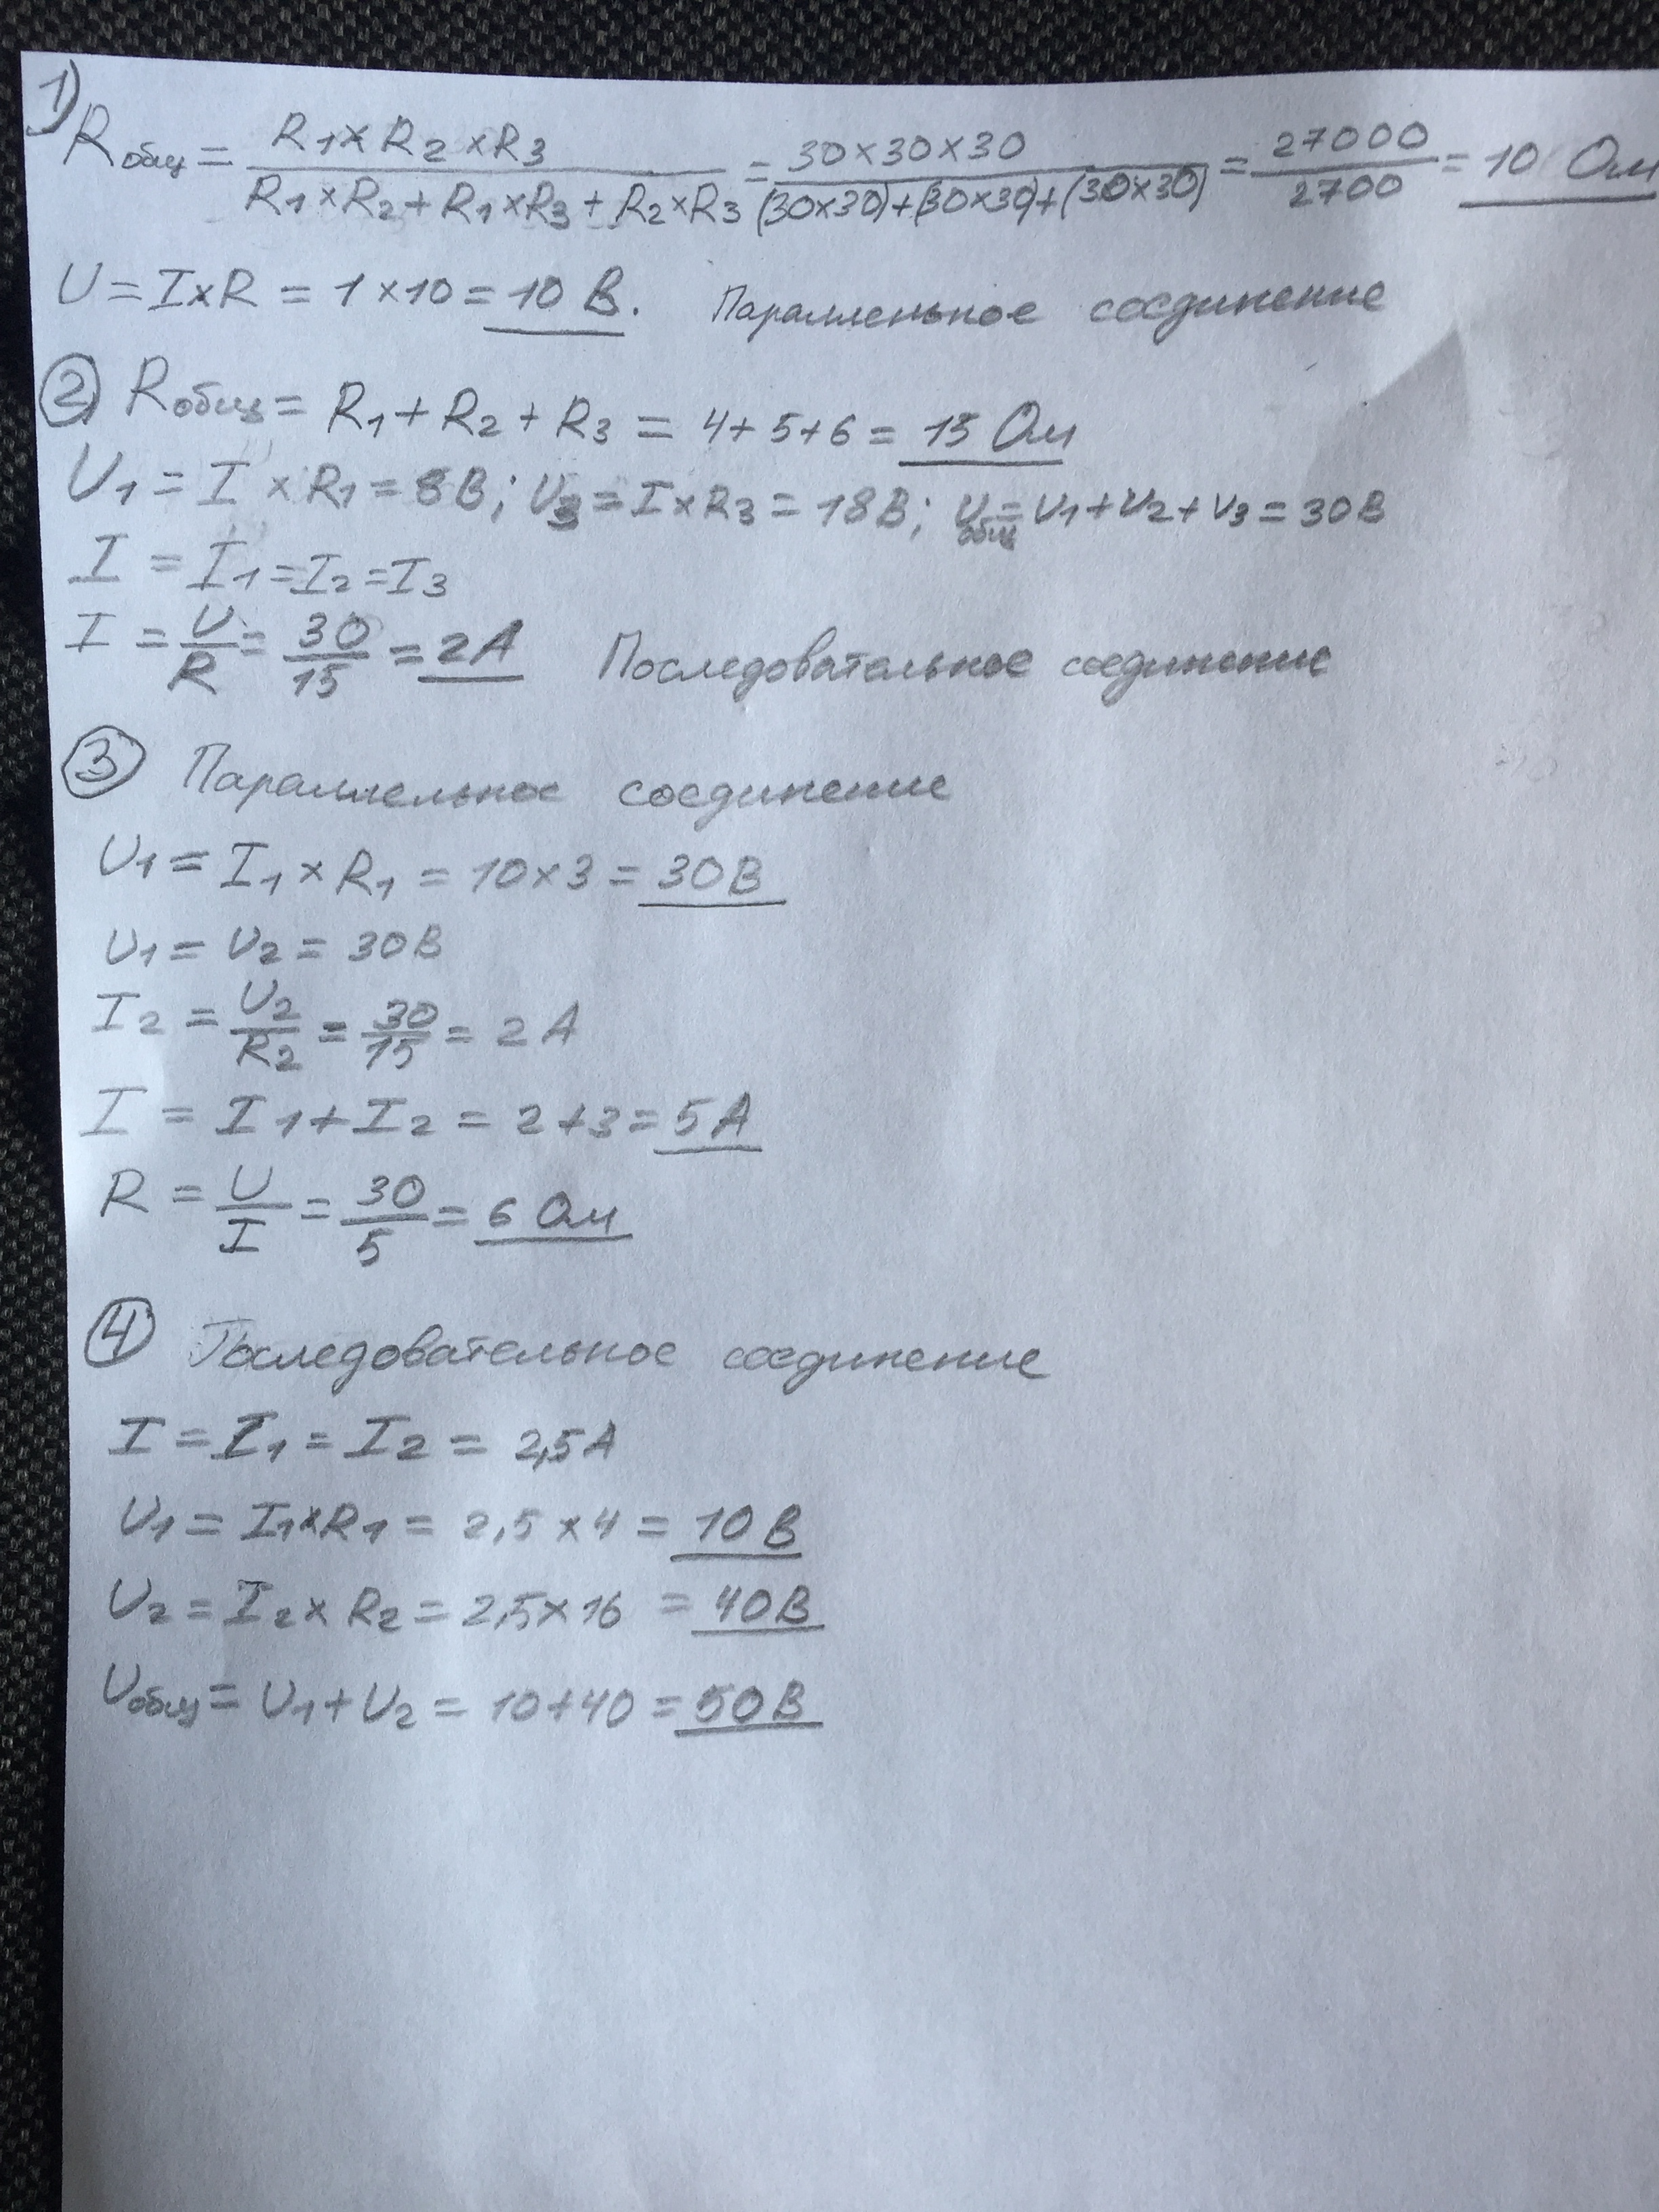 1)
Rобщ = R1×R2×R3 / R1×R2+R1×R3+R2×R3 = 30×30×30 / (30×30)+(30×30)+(30×30) = 27000 / 2700 = 10 Ом
U = I×R = 1×10 = 10 В. Параллельное соединение
2) Rобщ = R1 + R2 + R3 = 4+5+6 = 15 Ом
U1 = I × R1 = 8В; U3 = I×R3 = 18В; Uобщ = U1+U2+U3 = 30В
I = I1 = I2 = I3
I = U/R = 30/15 = 2А Последовательное соединение
3 Параллельное соединение
U1 = I1 × R1 = 10×3 = 30В
U1 = U2 = 30В
I2 = U2/R2 = 30/15 = 2А
I = I1 + I2 = 2+3 = 5А
R = U/I = 30/5 = 6 Ом
4 Последовательное соединение
I = I1 = I2 = 2,5А
U1 = I1×R1 = 2,5×4 = 10В
U2 = I2×R2 = 2,5×16 = 40В
Uобщ = U1+U2 = 10+40 = 50В